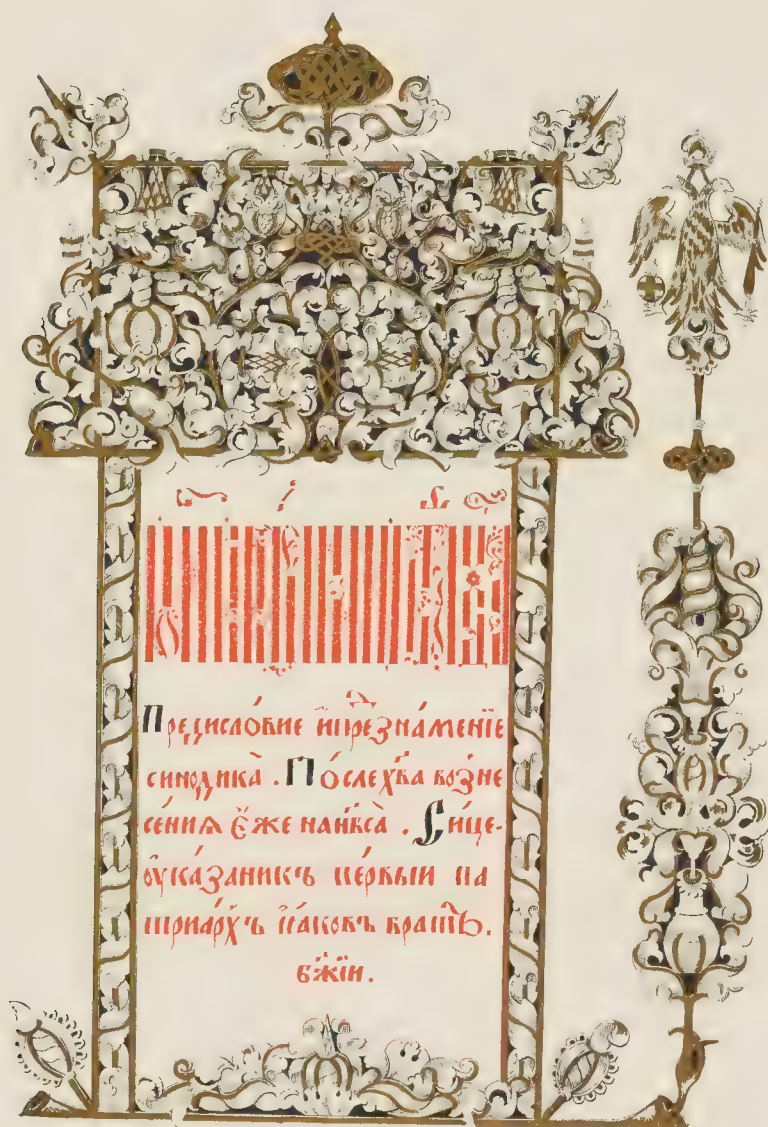 Предисло́вие и҆презна́менїе
синодика̀ . По́слехв҃а возне
се́ния є҆́же нан҃бса̀ . Си́це
ѹ҆ка́заникъ пе́рвый па
триа́рхъ і҆а́ковъ братъ.
бж҃їи.